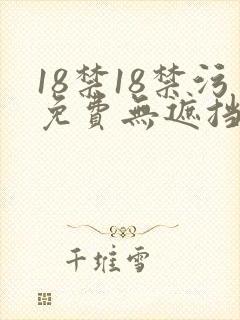 18禁18禁污
免費無遮挡
千堆雪